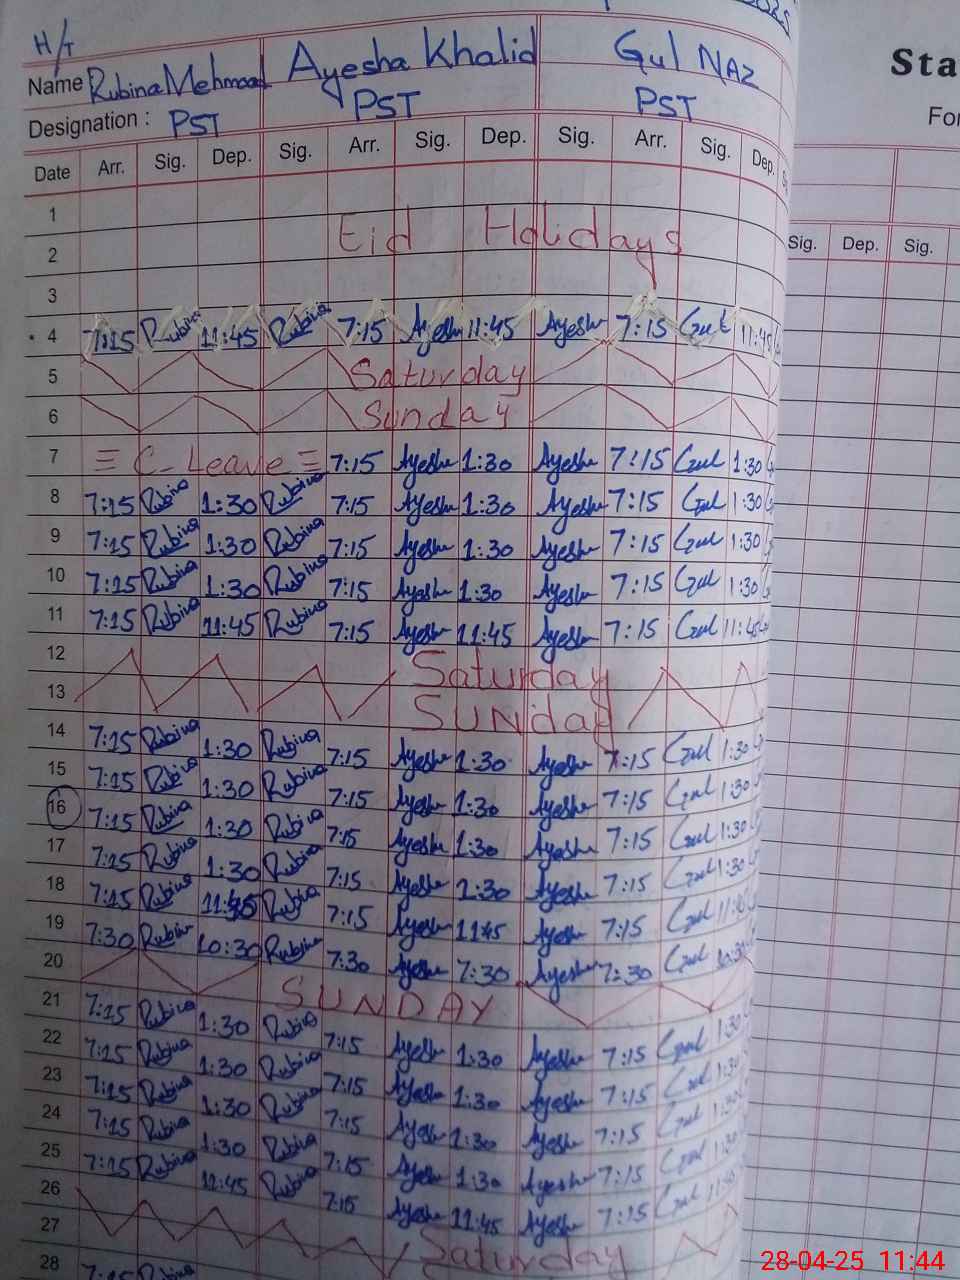 H/T
Name Rubina Mehmood Ayesha Khalid Gul Naz
Designation : PST PST PST
Date Arr. Sig. Dep. Sig. Arr. Sig. Dep. Sig. Arr. Sig. Dep.
1
2 Eid Holidays
3
4 7:15 Rubina 11:45 Rubina 7:15 Ayesha 11:45 Ayesha 7:15 Gul 11:45
5 Saturday
6 Sunday
7 C-Leave 7:15 Ayesha 1:30 Ayesha 7:15 Gul 1:30
8 7:15 Rubina 1:30 Rubina 7:15 Ayesha 1:30 Ayesha 7:15 Gul 1:30
9 7:15 Rubina 1:30 Rubina 7:15 Ayesha 1:30 Ayesha 7:15 Gul 1:30
10 7:15 Rubina 1:30 Rubina 7:15 Ayesha 1:30 Ayesha 7:15 Gul 1:30
11 7:15 Rubina 11:45 Rubina 7:15 Ayesha 11:45 Ayesha 7:15 Gul 11:45
12 Saturday
13 SUNday
14 7:15 Rubina 1:30 Rubina 7:15 Ayesha 1:30 Ayesha 7:15 Gul 1:30
15 7:15 Rubina 1:30 Rubina 7:15 Ayesha 1:30 Ayesha 7:15 Gul 1:30
16 7:15 Rubina 1:30 Rubina 7:15 Ayesha 1:30 Ayesha 7:15 Gul 1:30
17 7:15 Rubina 1:30 Rubina 7:15 Ayesha 1:30 Ayesha 7:15 Gul 1:30
18 7:15 Rubina 11:45 Rubina 7:15 Ayesha 11:45 Ayesha 7:15 Gul 11:45
19 7:30 Rubina 10:30 Rubina 7:30 Ayesha 7:30 Ayesha 7:30 Gul 10:30
20 SUNDAY
21 7:15 Rubina 1:30 Rubina 7:15 Ayesha 1:30 Ayesha 7:15 Gul 1:30
22 7:15 Rubina 1:30 Rubina 7:15 Ayesha 1:30 Ayesha 7:15 Gul 1:30
23 7:15 Rubina 1:30 Rubina 7:15 Ayesha 1:30 Ayesha 7:15 Gul 1:30
24 7:15 Rubina 1:30 Rubina 7:15 Ayesha 1:30 Ayesha 7:15 Gul 1:30
25 7:15 Rubina 11:45 Rubina 7:15 Ayesha 11:45 Ayesha 7:15 Gul 11:45
26 Saturday
27
28
Sta
For
Sig. Dep. Sig.
28-04-25 11:44